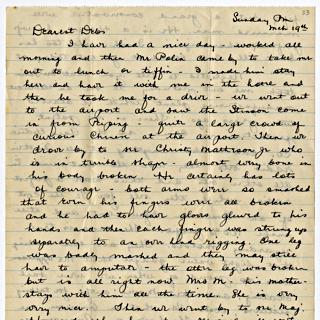 33
Sunday Pm
Mch. 19th
Dearest Debs
I have had a nice day - worked all
morning and then Mr Polin came by to take me
out to lunch or tiffin. I made him stay
her and have it with me in the home and
then he took me for a drive - we went out
to the airport and saw the Stinson come
in from Peiping - quite a large crowd of
curious Chinese at the airport. Then we
drove by to see Christy Mattison Jr who
is in terrible shape - almost every bone in
his body broken. He certainly has lots
of courage - both arms were so smashed
that even his fingers were all broken
and he had to have gloves glued to his
hands and then each finger was strung up
separately to an over head rigging. One leg
was badly mashed and they may still
have to amputate - the other leg was broken
but is all right now Mrs M - his mother -
stays with him all the time. She is very
very nice. Then we went by to see Maj.